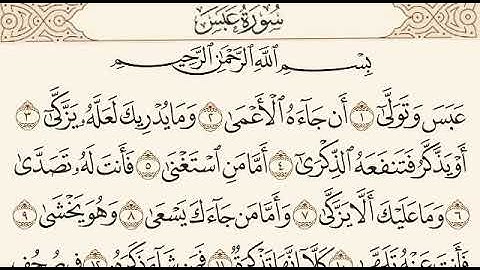 سُورَةُ عَبَسَ
بِسْمِ ٱللَّهِ ٱلرَّحْمَٰنِ ٱلرَّحِيمِ
عَبَسَ وَتَوَلَّىٰٓ ١ أَن جَآءَهُ ٱلْأَعْمَىٰ ٢ وَمَا يُدْرِيكَ لَعَلَّهُۥ يَزَّكَّىٰٓ ٣
أَوْ يَذَّكَّرُ فَتَنفَعَهُ ٱلذِّكْرَىٰٓ ٤ أَمَّا مَنِ ٱسْتَغْنَىٰ ٥ فَأَنتَ لَهُۥ تَصَدَّىٰ
٦ وَمَا عَلَيْكَ أَلَّا يَزَّكَّىٰ ٧ وَأَمَّا مَن جَآءَكَ يَسْعَىٰ ٨ وَهُوَ يَخْشَىٰ ٩
فَأَنتَ عَنْهُ تَلَهَّىٰ ١٠ كَلَّآ إِنَّهَا تَذْكِرَةٌ ١١ فَمَن شَآءَ ذَكَرَهُۥ ١٢ فِى صُحُفٍ